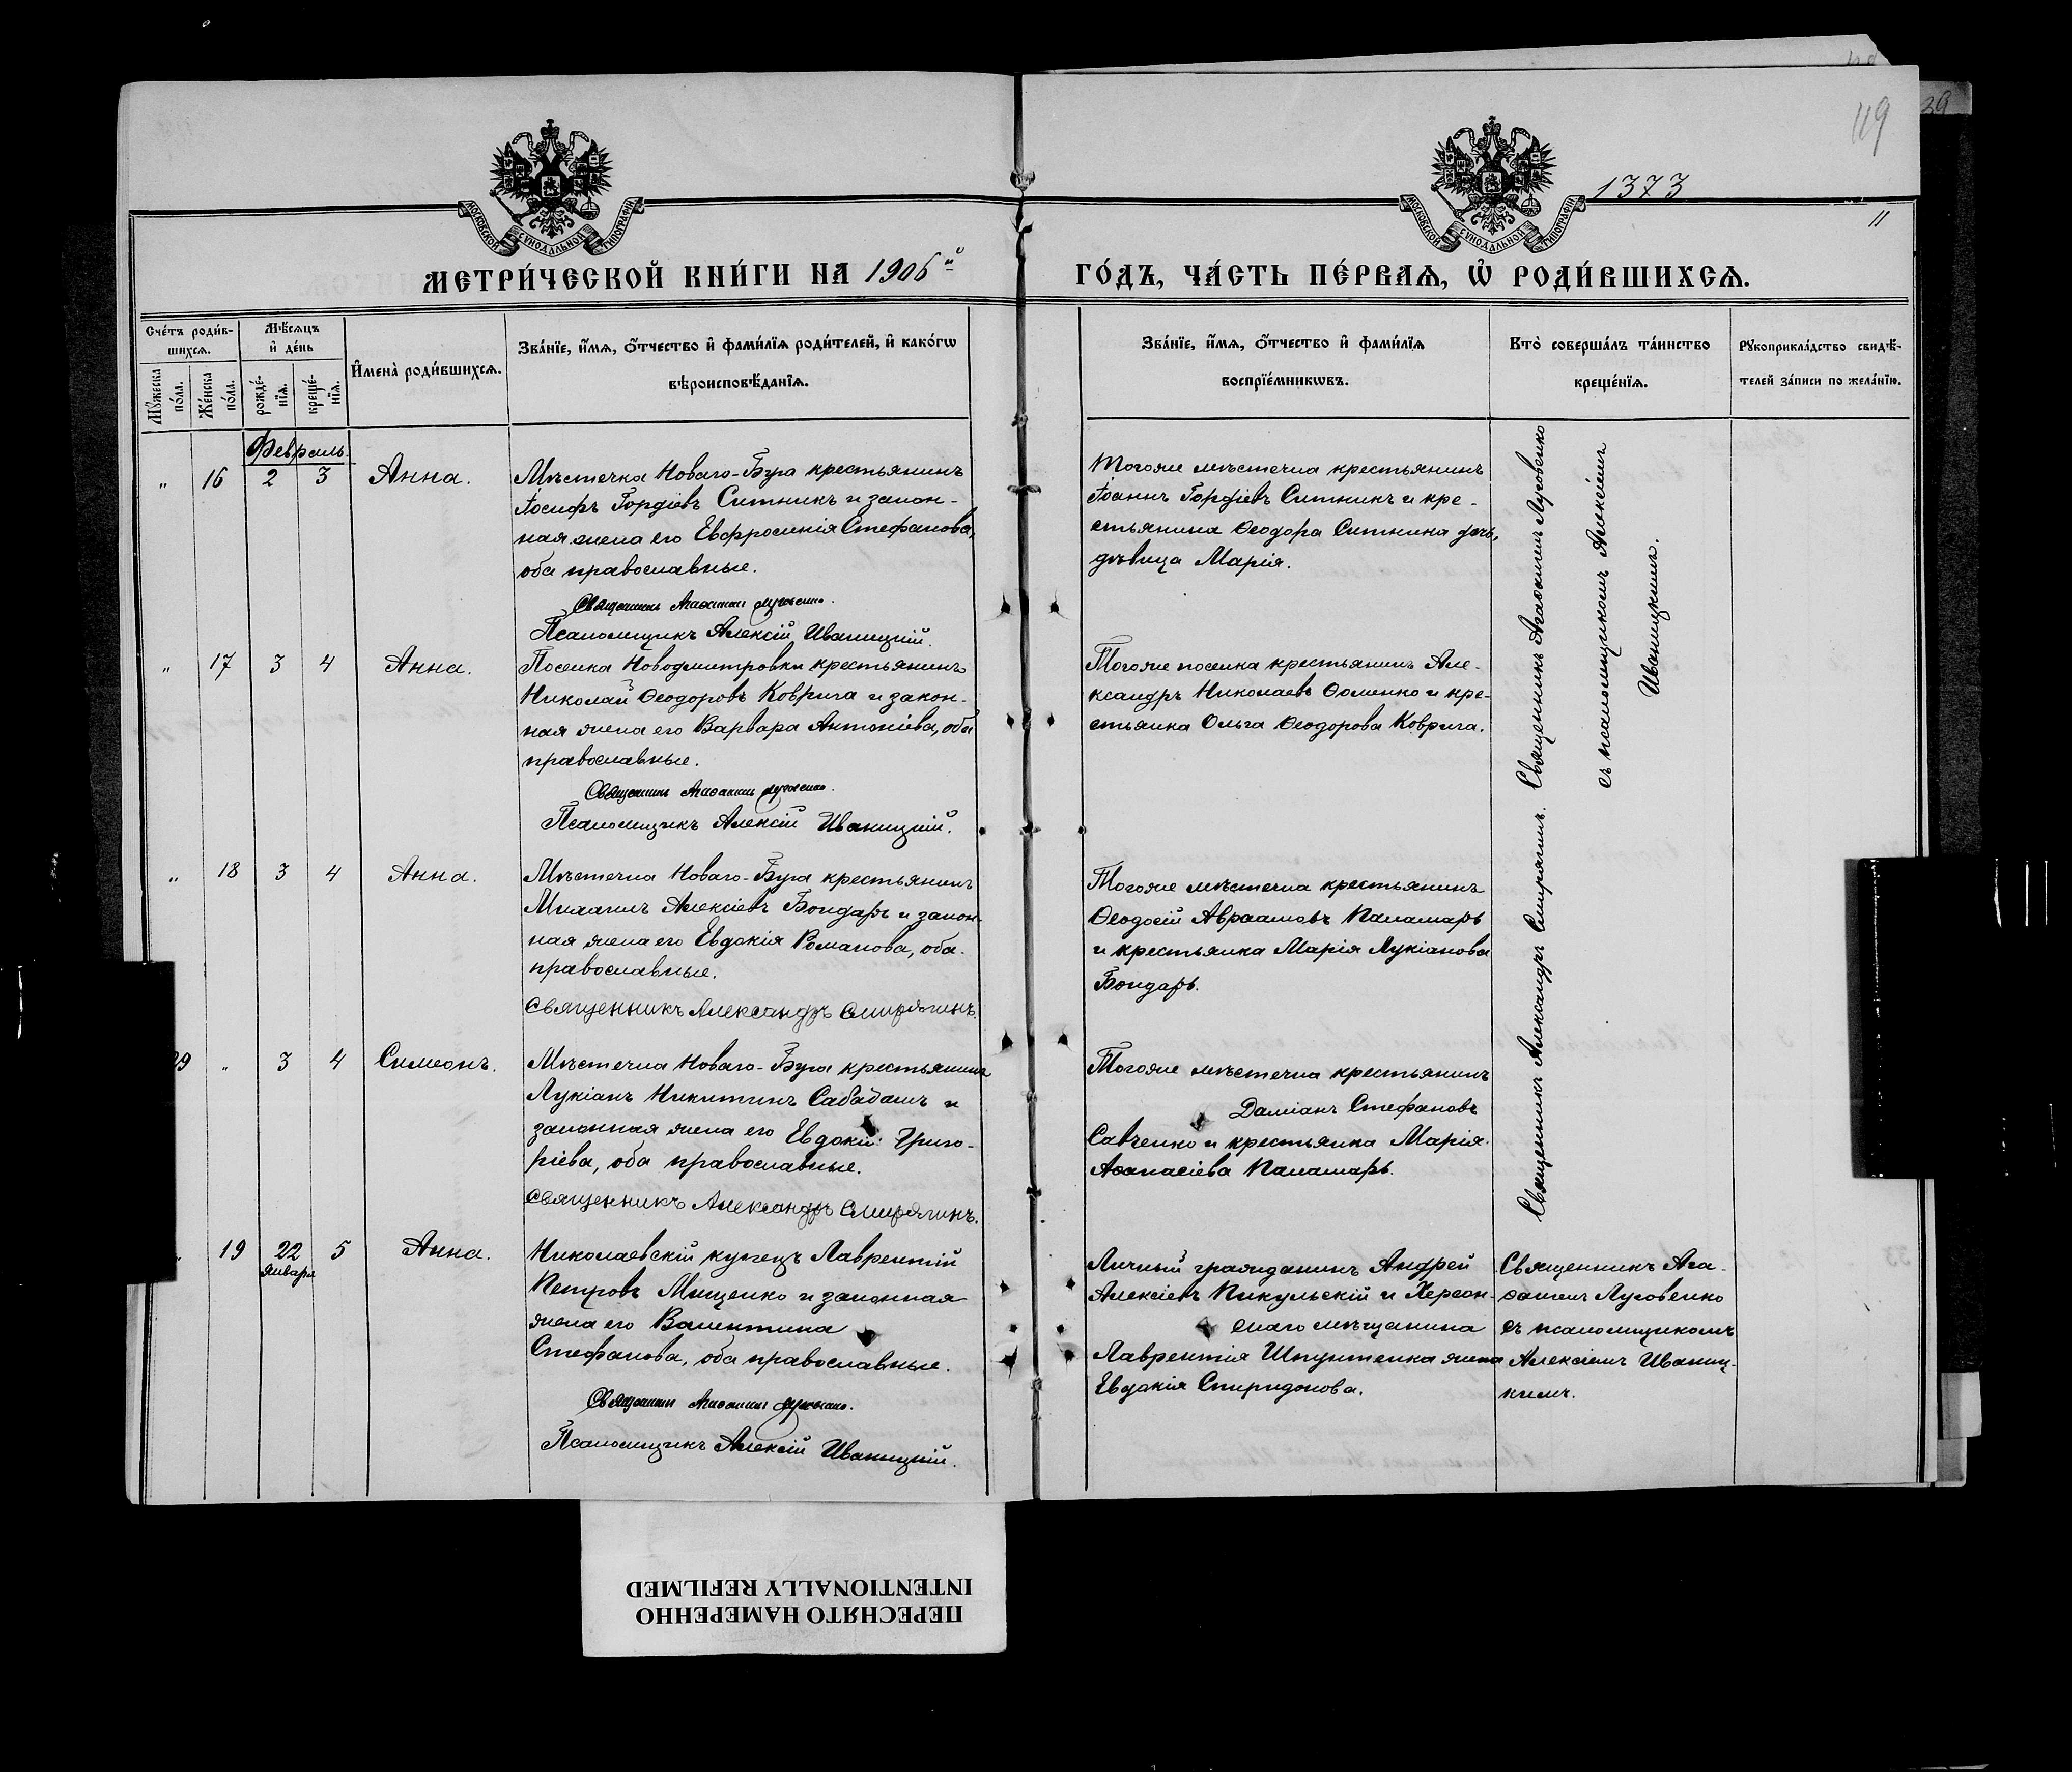 119
39
1373
11
МОСКОВСКОЙ СУНОДАЛЬНОЙ ТИПОГРАФІИ
МОСКОВСКОЙ СУНОДАЛЬНОЙ ТИПОГРАФІИ
МЕТРИ́ЧЕСКОЙ КНИ́ГИ НА 1906й
ГО́ДЪ, ЧА́СТЬ ПЕ́РВАѦ, Ѽ РОДИ́ВШИХСѦ.
Сче́тъ роди́в-
шихсѧ.
Мꙋ́жеска
по́ла.
Же́нска
по́ла.
Мѣ́сѧцъ
и҆ де́нь
рожде́-
нїѧ.
креще́-
нїѧ.
И҆мена̀ роди́вшихсѧ.
Зва́нїе, и҆́мѧ, ѻ҆́тчество и҆ фами́лїѧ роди́телей, и҆ како́гѡ
вѣроисповѣ́данїѧ.
Зва́нїе, и҆́мѧ, ѻ҆́тчество и҆ фами́лїѧ
воспрїе́мникѡвъ.
Кто̀ соверша́лъ та́инство
креще́нїѧ.
Рꙋкоприкла́дство свидѣ́-
телей за́писи по жела́нїю.
Февраль
„ 16 2 3 Анна.
Мѣстечка Новаго-Буга крестьянинъ
Іосифъ Гордіевъ Ситникъ и закон-
ная жена его Евфросинія Стефанова,
оба православные.
Священникъ Агаѳангелъ Луговенко.
Псаломщикъ Алексій Иваницкій.
Тогоже мѣстечка крестьянинъ
Іоаннъ Гордіевъ Ситникъ и кре-
стьянина Ѳеодора Ситника дочь,
дѣвица Марія.
„ 17 3 4 Анна.
Поселка Новодмитровки крестьянинъ
Николай Ѳеодоровъ Коврига и закон-
ная жена его Варвара Антоніева, оба
православные.
Священникъ Агаѳангелъ Луговенко.
Псаломщикъ Алексій Иваницкій.
Тогоже поселка крестьянинъ Але-
ксандръ Николаевъ Ѳоменко и кре-
стьянка Ольга Ѳеодорова Коврига.
Священникъ Агаѳангелъ Луговенко
съ псаломщикомъ Алексіемъ
Иваницкимъ.
„ 18 3 4 Анна.
Мѣстечка Новаго-Буга крестьянинъ
Михаилъ Алексіевъ Бондарь и закон-
ная жена его Евдокія Романова, оба
православные.
Священникъ Александръ Смирягинъ.
Тогоже мѣстечка крестьянинъ
Ѳеодосій Авраамовъ Паламарь
и крестьянка Марія Лукіанова
Бондарь.
29 „ 3 4 Симеонъ.
Мѣстечка Новаго-Буга крестьянинъ
Лукіанъ Никитинъ Сабадашъ и
законная жена его Евдокія Григо-
ріева, оба православные.
Священникъ Александръ Смирягинъ.
Тогоже мѣстечка крестьянинъ
Даміанъ Стефановъ
Савченко и крестьянка Марія
Аѳанасіева Паламарь.
Священникъ Александръ Смирягинъ.
„ 19 22 5 Анна.
января
Николаевскій купецъ Лаврентій
Петровъ Мищенко и законная
жена его Валентина
Стефанова, оба православные.
Священникъ Агаѳангелъ Луговенко.
Псаломщикъ Алексій Иваницкій.
Личный гражданинъ Андрей
Алексіевъ Пикульскій и Херсон-
скаго мѣщанина
Лаврентія Шпунтенка жена
Евдокія Спиридонова.
Священникъ Ага-
ѳангелъ Луговенко
съ псаломщикомъ
Алексіемъ Иваниц-
кимъ.
ПЕРЕСНЯТО НАМЕРЕННО
INTENTIONALLY REFILMED